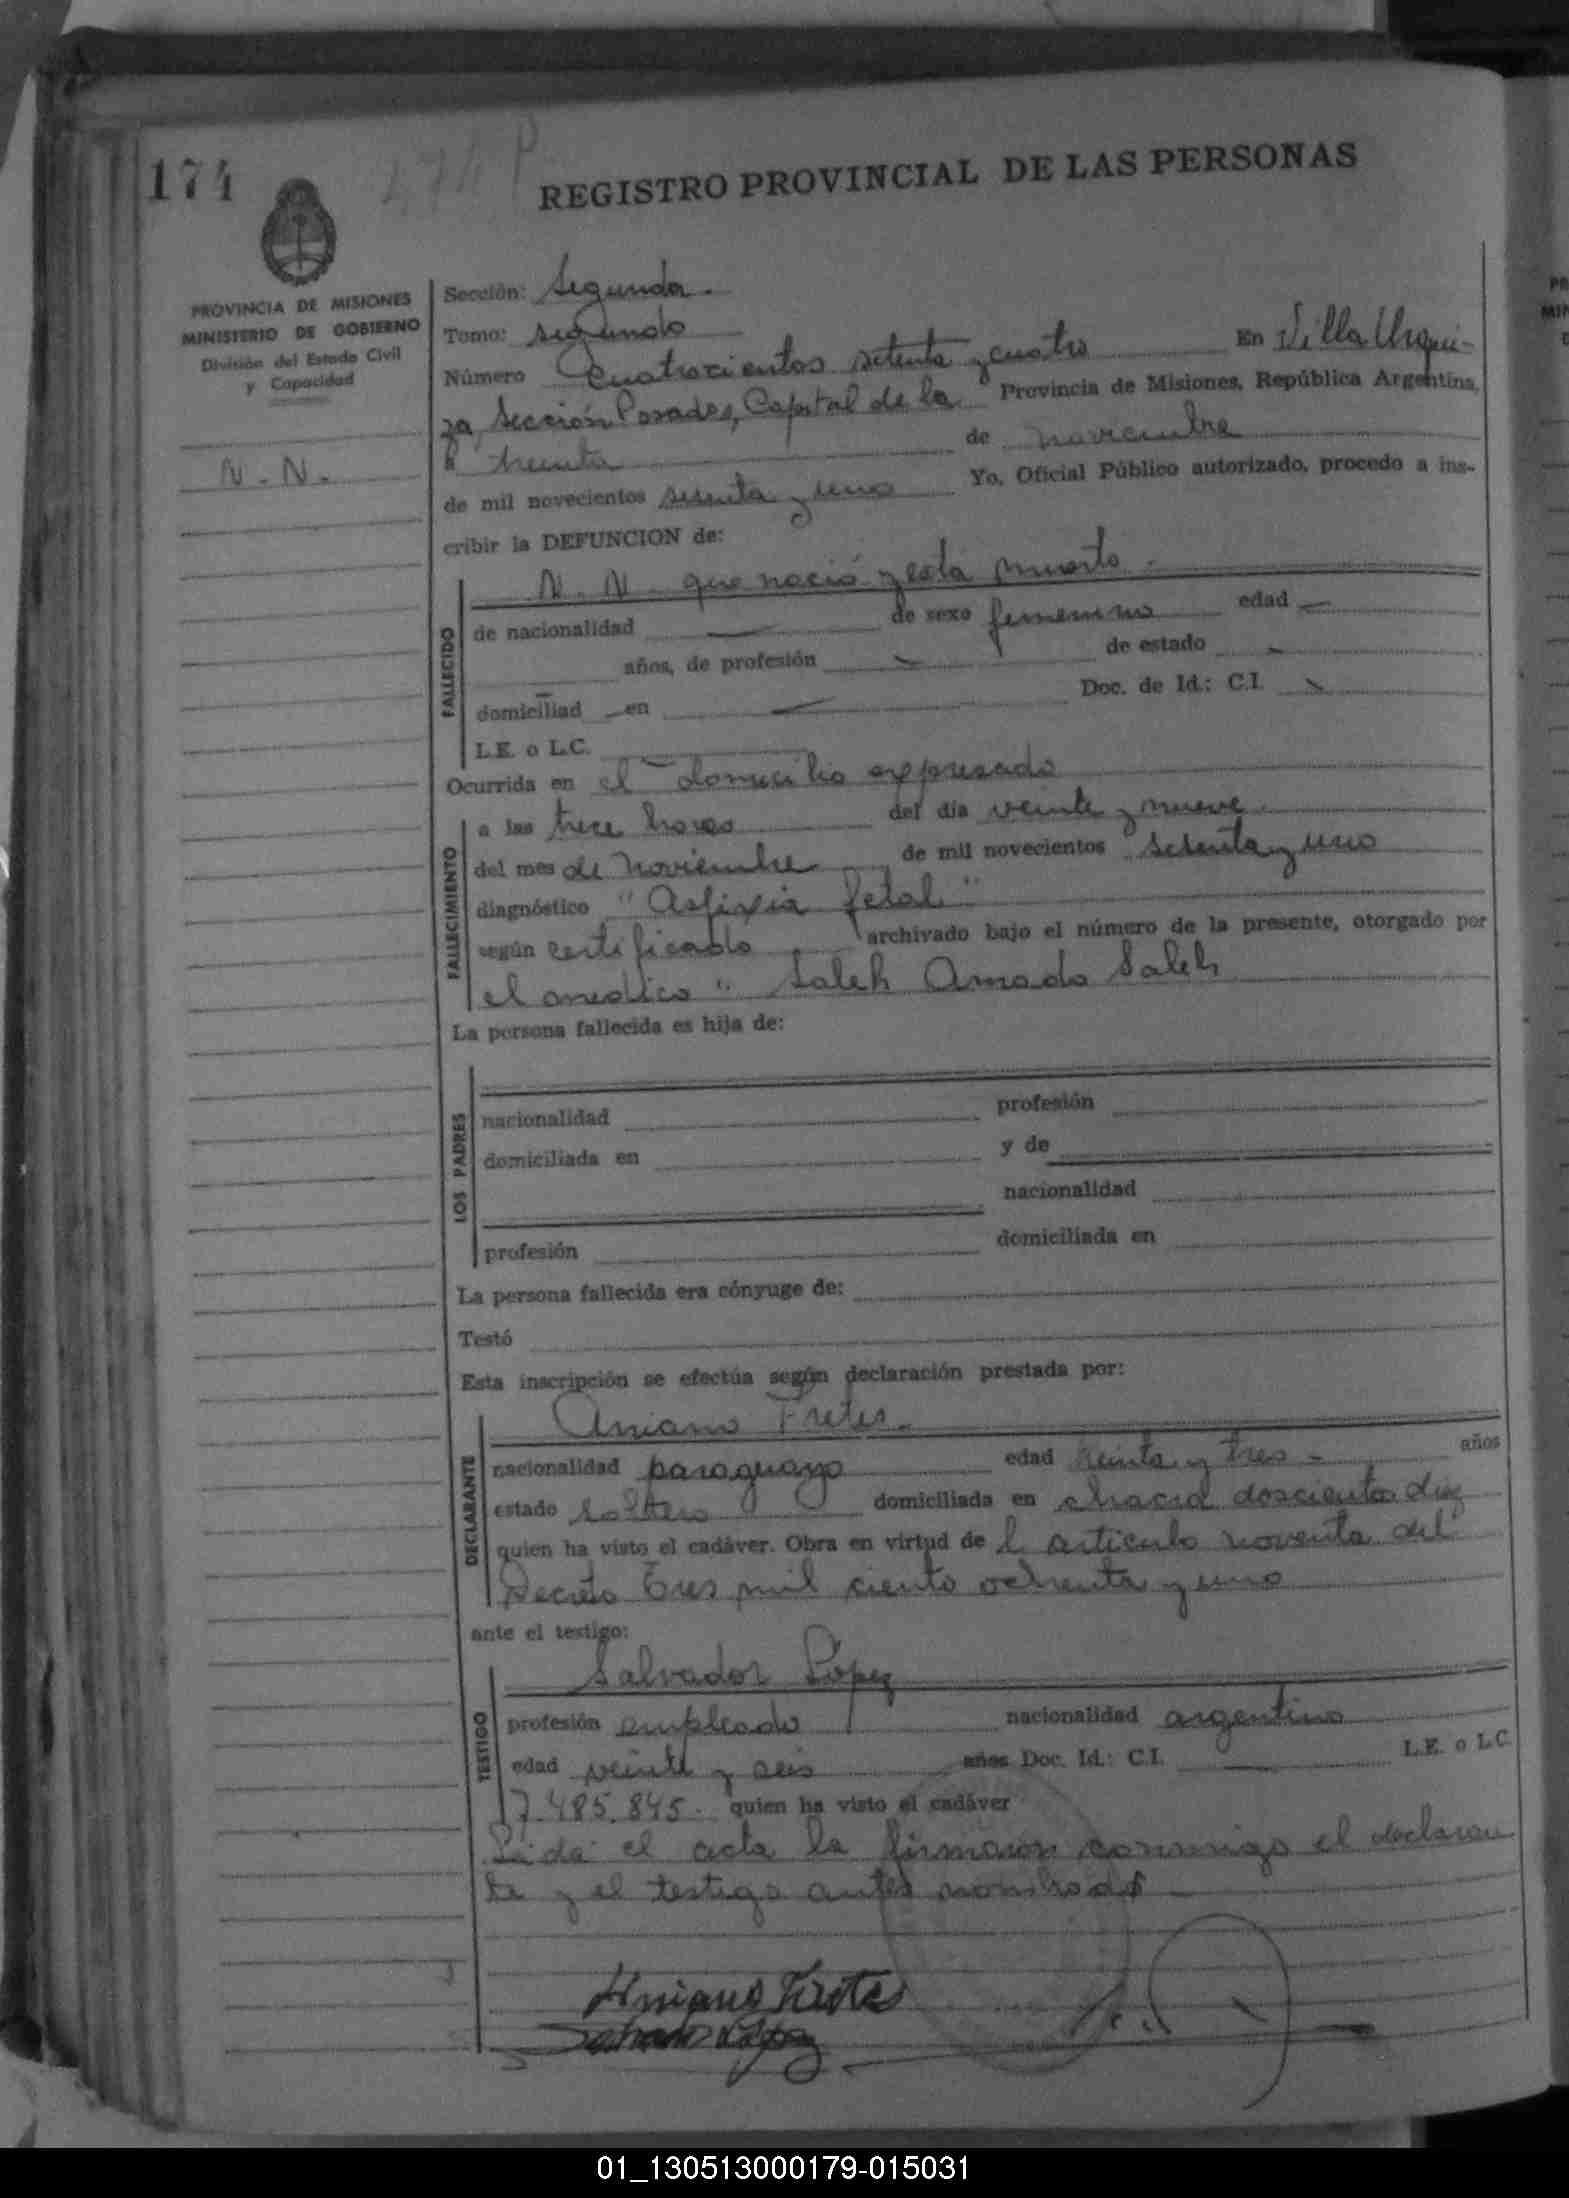 174
474 P
REGISTRO PROVINCIAL DE LAS PERSONAS
PROVINCIA DE MISIONES
MINISTERIO DE GOBIERNO
División del Estado Civil
y Capacidad
N. N.
Sección: Segunda.
Tomo: segundo
Número Cuatrocientos setenta y cuatro En Villa Urqui-
za, Sección Posadas, Capital de la Provincia de Misiones, República Argentina,
a treinta de noviembre
de mil novecientos setenta y uno Yo, Oficial Público autorizado, procedo a ins-
cribir la DEFUNCION de:
N. N. que nació y esta muerto -
FALLECIDO
de nacionalidad — de sexo femenino edad —
años, de profesión — de estado -
domiciliad — en — Doc. de Id.: C.I. -
L.E. o L.C. —
Ocurrida en el domicilio expresado
FALLECIMIENTO
a las trece horas del día veinte y nueve
del mes de noviembre de mil novecientos setenta y uno
diagnóstico "Asfixia fetal"
según certificado archivado bajo el número de la presente, otorgado por
el medico " Saleh Amado Saleh
La persona fallecida es hija de:
LOS PADRES
nacionalidad profesión
domiciliada en y de
nacionalidad
profesión domiciliada en
La persona fallecida era cónyuge de:
Testó
Esta inscripción se efectúa según declaración prestada por:
Aniano Fretes.
DECLARANTE
nacionalidad paraguayo edad treinta y tres - años
estado soltero domiciliada en chacra doscientos diez
quien ha visto el cadáver. Obra en virtud de l articulo noventa del
Decreto Tres mil ciento ochenta y uno
ante el testigo:
Salvador López
TESTIGO
profesión empleado nacionalidad argentino
edad veinte y seis años Doc. Id.: C.I. — L.E. o L.C.
7.485.845. quien ha visto el cadáver
Leida el acta la firmaron conmigo el declaran
te y el testigo antes nombrado -
Aniano Fretes
Salvador López
01_130513000179-015031